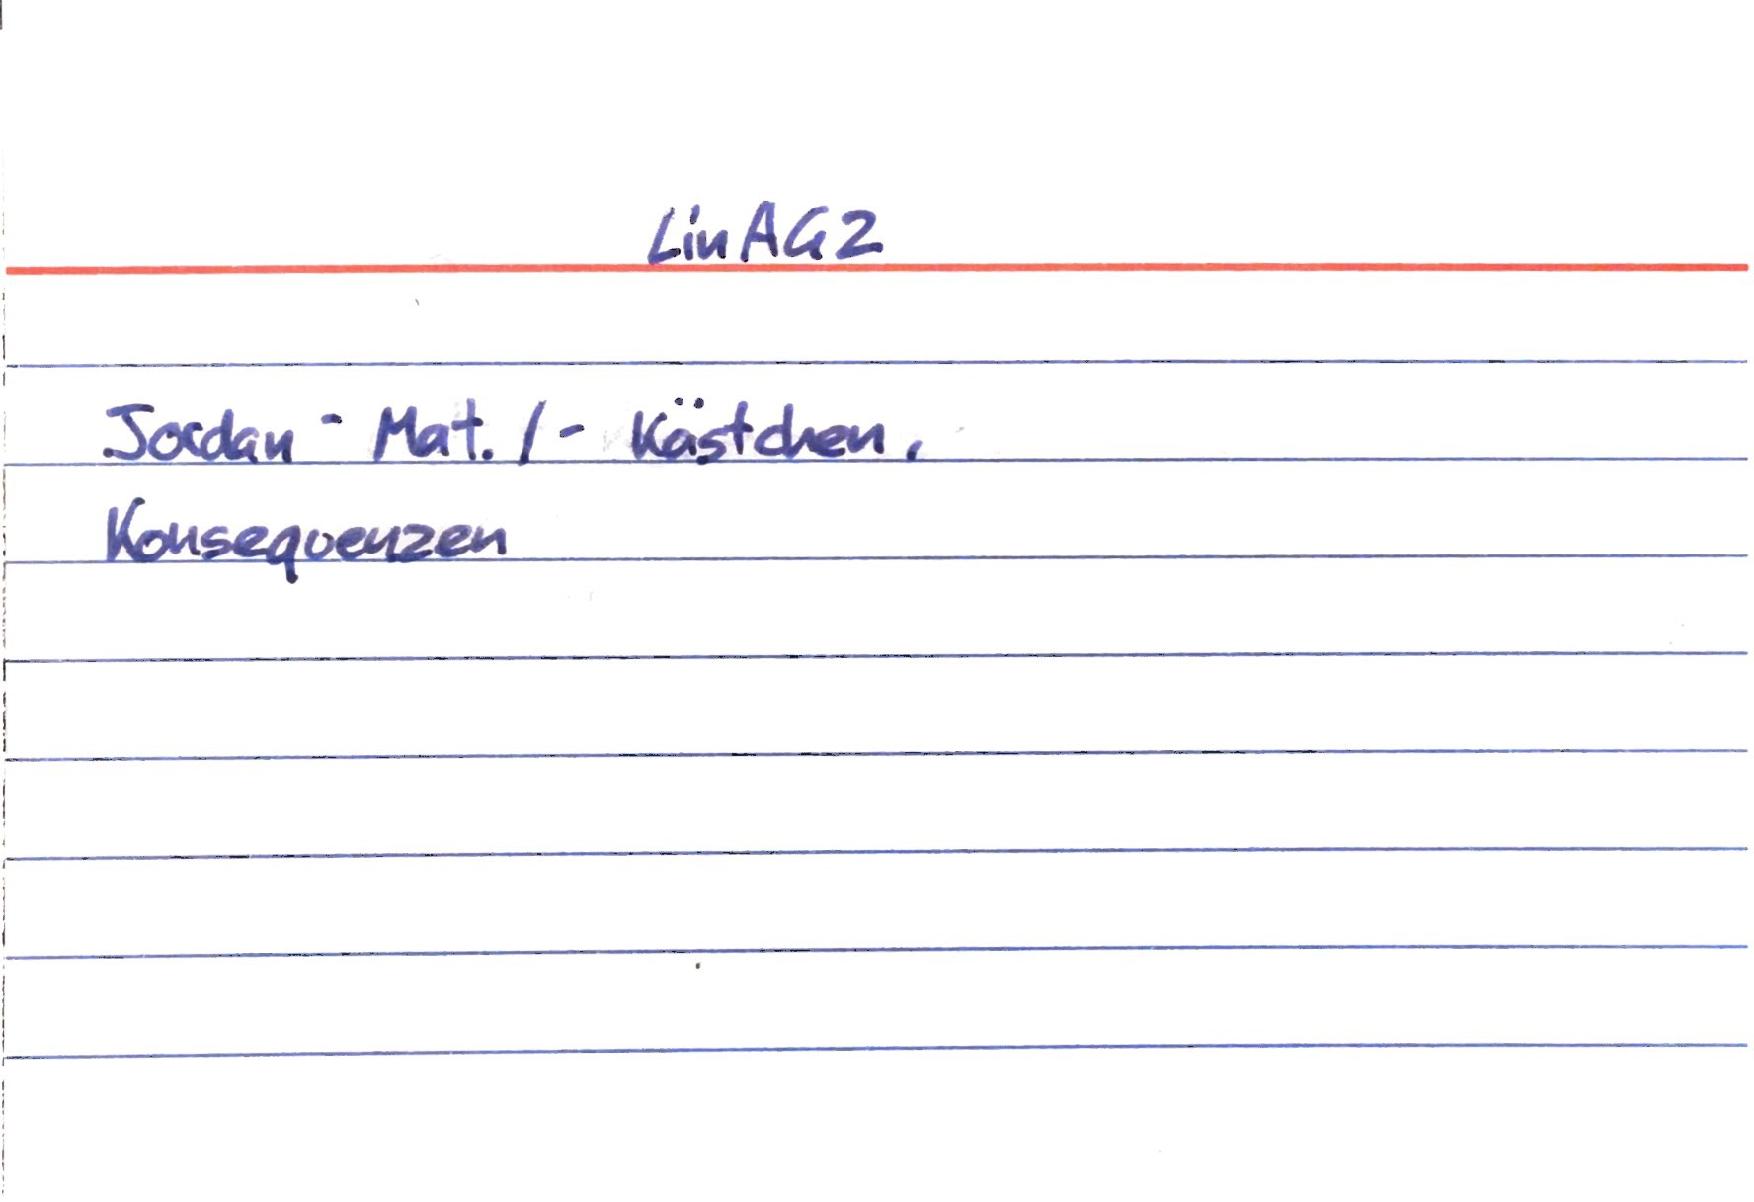 LinAG2
Jordan - Mat. /- Kästchen,
Konsequenzen